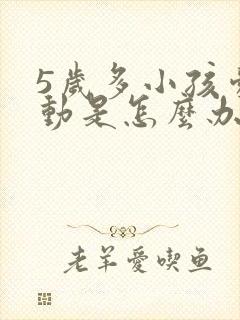 5歲多小孩
動是怎麼办
老羊愛喫鱼